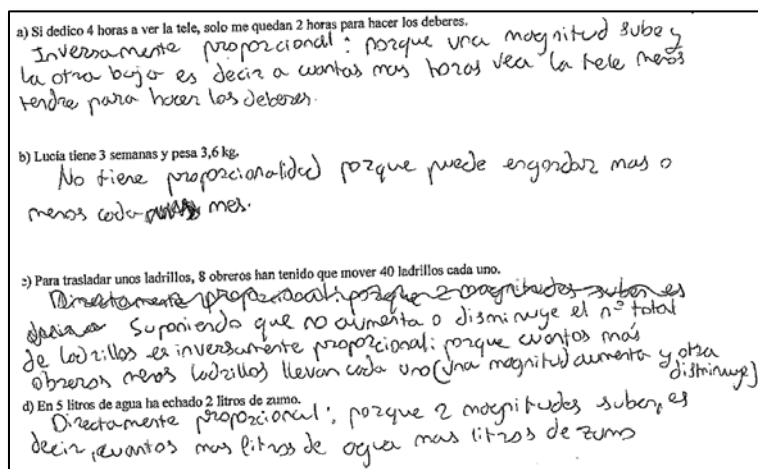 a) Si dedico 4 horas a ver la tele, solo me quedan 2 horas para hacer los deberes.
Inversamente proporcional: porque una magnitud sube y
la otra baja es decir a cuantas mas horas vea la tele menos
tendre para hacer los deberes.
b) Lucía tiene 3 semanas y pesa 3,6 kg.
No tiene proporcionalidad porque puede engordar mas o
menos cada mes.
c) Para trasladar unos ladrillos, 8 obreros han tenido que mover 40 ladrillos cada uno.
Directamente proporcional: porque 2 magnitudes suben es
decir Suponiendo que no aumenta o disminuye el nº total
de ladrillos es inversamente proporcional: porque cuantos más
obreros menos ladrillos llevan cada uno (una magnitud aumenta y otra
disminuye)
d) En 5 litros de agua ha echado 2 litros de zumo.
Directamente proporcional: porque 2 magnitudes suben, es
decir, cuantos mas litros de agua mas litros de zumo